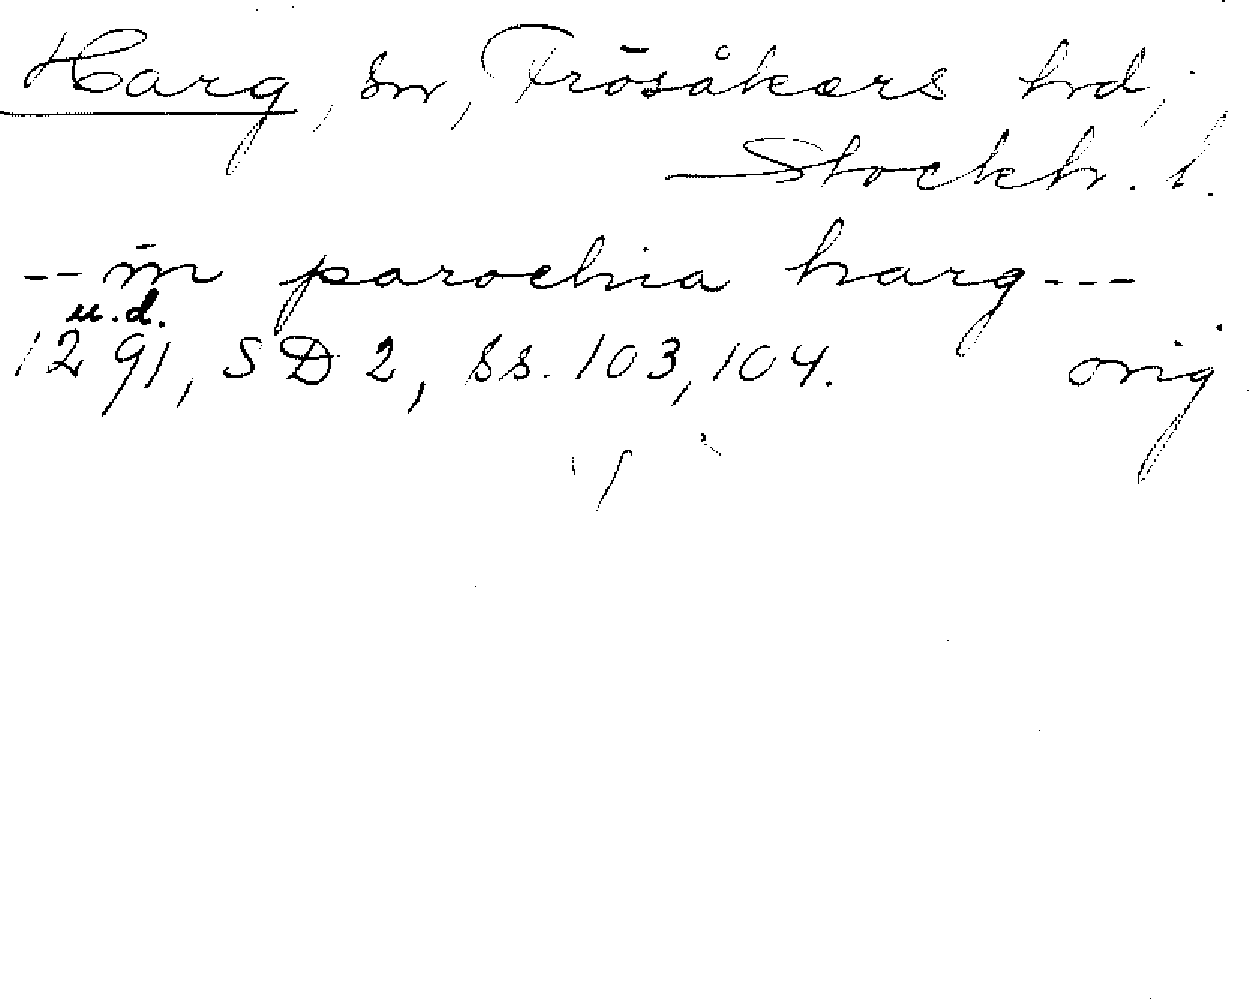 Harg, sn, Frösåkers hrd,
Stockh. l.
-- in parochia harg ---
u.d.
1291, SD 2, ss. 103, 104. orig